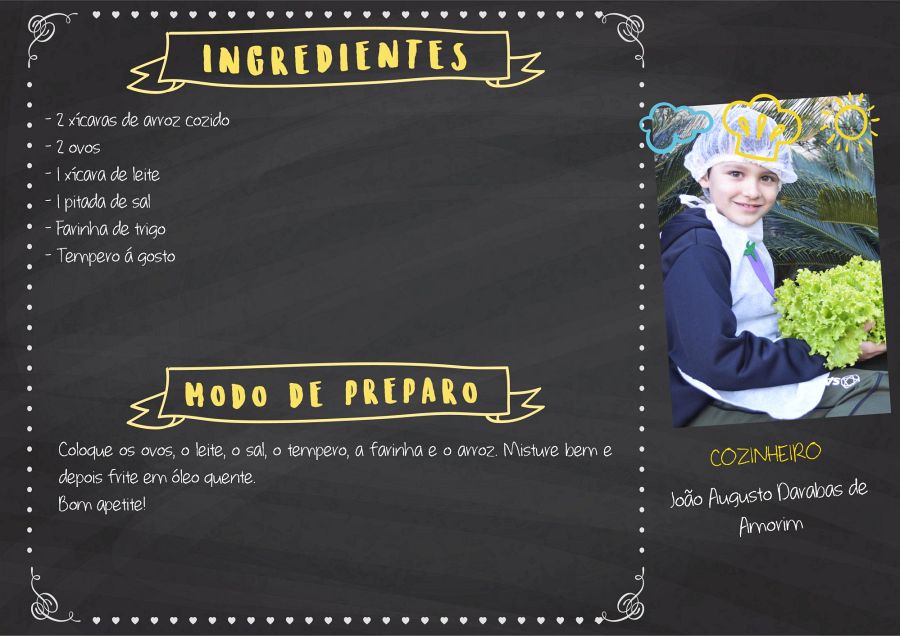 INGREDIENTES
- 2 xícaras de arroz cozido
- 2 ovos
- 1 xícara de leite
- 1 pitada de sal
- Farinha de trigo
- Tempero á gosto
MODO DE PREPARO
Coloque os ovos, o leite, o sal, o tempero, a farinha e o arroz. Misture bem e
depois frite em óleo quente.
Bom apetite!
COZINHEIRO
João Augusto Darabas de
Amorim